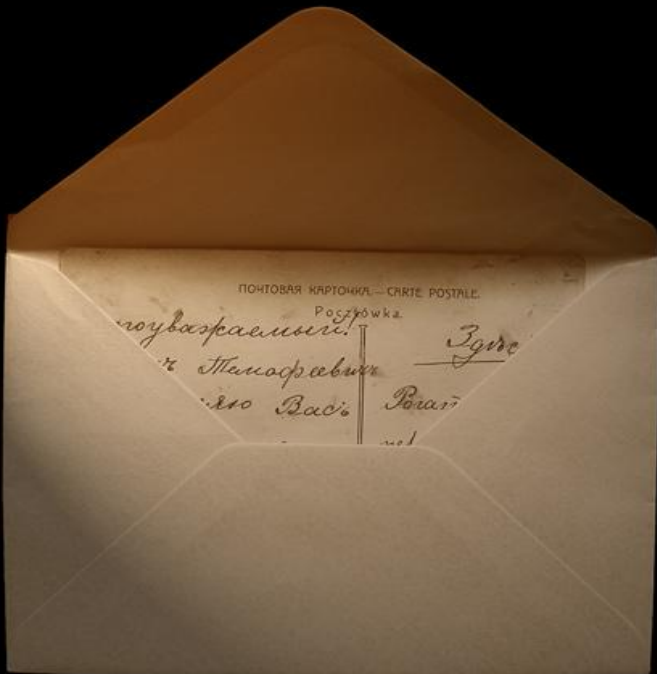 ПОЧТОВАЯ КАРТОЧКА. — CARTE POSTALE.
Pocztówka.
ноуважаемый!
ъ Тимофеевичъ
ляю Васъ
Здѣс